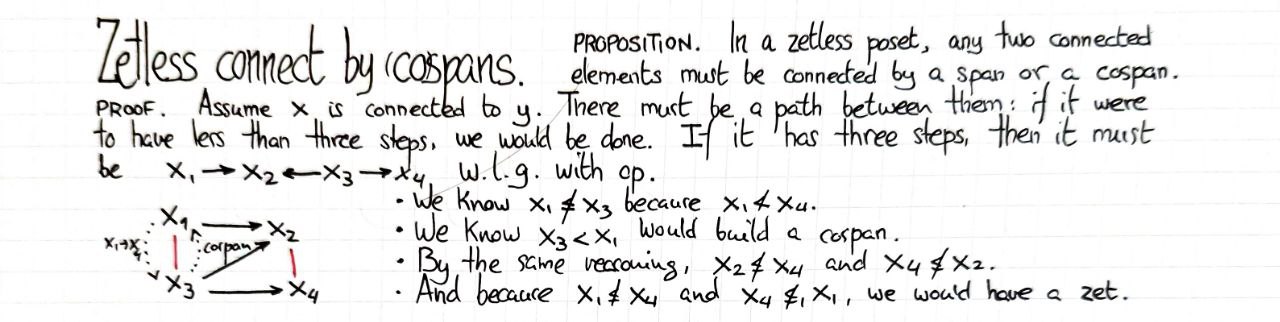 Zetless connect by (co)spans.
PROPOSITION. In a zetless poset, any two connected
elements must be connected by a span or a cospan.
PROOF. Assume x is connected to y. There must be a path between them: if it were
to have less than three steps, we would be done. If it has three steps, then it must
be x₁ → x₂ ← x₃ → x₄ w.l.g. with op.
· We know x₁ ≮ x₃ because x₁ ≮ x₄.
· We know x₃ < x₁ would build a cospan.
· By the same reasoning, x₂ ≮ x₄ and x₄ ≮ x₂.
· And because x₁ ≮ x₄ and x₄ ≮ x₁, we would have a zet.
x₁ x₂
x₁→x₄ cospan
x₃ x₄